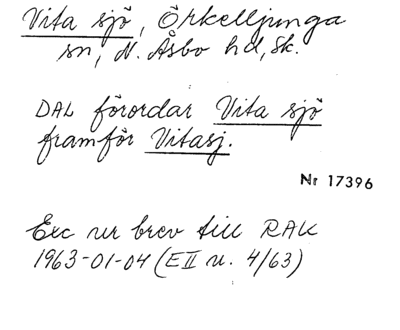 Vita sjö, Örkelljunga
sn, N. Åsbo hd, Sk.
DAL förordar Vita sjö
framför Vitasj.
Nr 17396
Exc ur brev till RAK
1963-01-04 (E II u. 4/63)